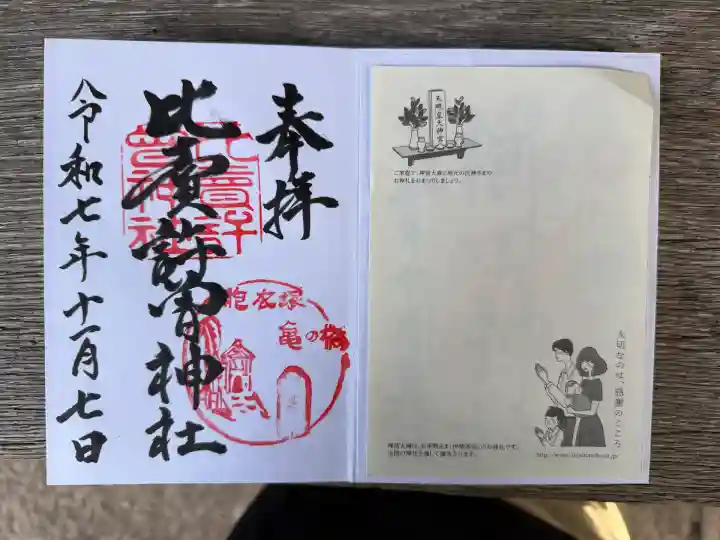 奉拝
比賣許曽神社
令和七年十一月七日
比賣許
曽神社
胞衣塚
亀の橋
天照皇大神宮
ご家庭で、神宮大麻と地元の氏神さまの
お神札をおまつりしましょう。
大切なのは、感謝のこころ
全国の神社を通して頒布されます。